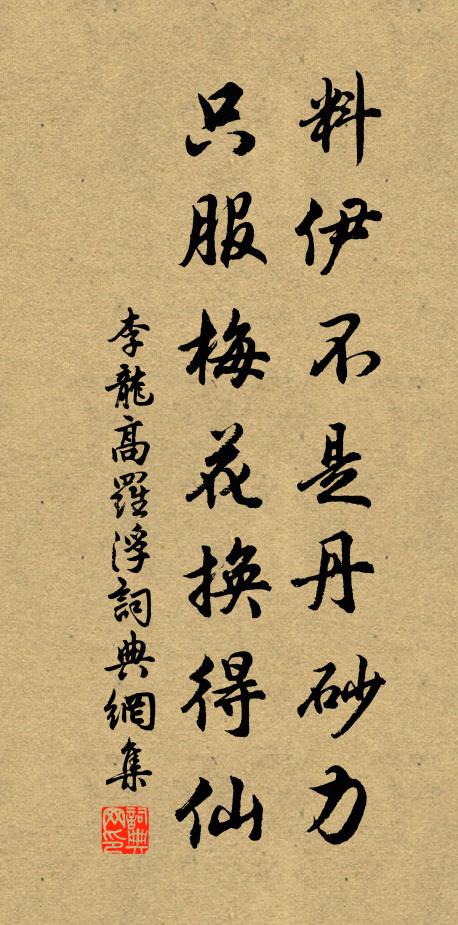 料伊不是丹砂力
只服梅花換得仙
李龍高羅浮詞典網集
詞典网印